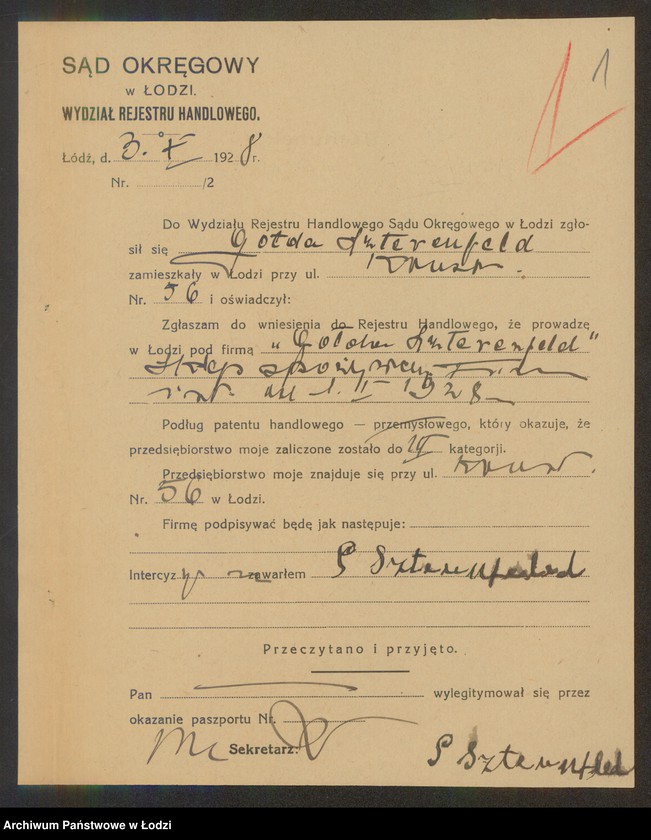 1
SĄD OKRĘGOWY
w ŁODZI.
WYDZIAŁ REJESTRU HANDLOWEGO.
Łódź, d. 3. X 1928 r.
Nr. /2
Do Wydziału Rejestru Handlowego Sądu Okręgowego w Łodzi zgło-
sił się Gołda Szterenfeld
zamieszkały w Łodzi przy ul.
Nr. 56 i oświadczył:
Zgłaszam do wniesienia do Rejestru Handlowego, że prowadzę
w Łodzi pod firmą „Gołda Szterenfeld"
Sklep spożywczy
1928
Podług patentu handlowego — przemysłowego, który okazuje, że
przedsiębiorstwo moje zaliczone zostało do III kategorji.
Przedsiębiorstwo moje znajduje się przy ul.
Nr. 56 w Łodzi.
Firmę podpisywać będę jak następuje:
Intercyzy nie zawarłem G Szterenfeld
Przeczytano i przyjęto.
Pan wylegitymował się przez
okazanie paszportu Nr.
Sekretarz:
Archiwum Państwowe w Łodzi